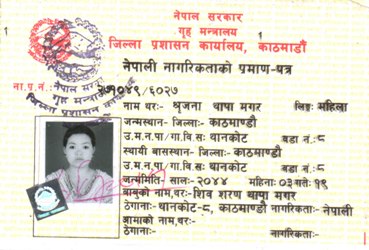 नेपाल सरकार
गृह मन्त्रालय
जिल्ला प्रशासन कार्यालय, काठमाडौं
नेपाली नागरिकताको प्रमाण-पत्र
ना.प्र.नं.: २७१०४९/६०२७
नाम थर:- श्रृजना थापा मगर लिङ्ग: महिला
जन्मस्थान - जिल्ला:- काठमाण्डौ
उ.म.न.पा/गा.वि.स: थानकोट वडा नं.:८
स्थायी बासस्थान- जिल्ला:- काठमाण्डौ
उ.म.न.पा/गा.वि.स: थानकोट वडा नं.:८
जन्ममिति - साल:- २०४४ महिना: ०३ गते: १९
बाबुको नाम,थर:- शिव शरण थापा मगर
ठेगाना:- थानकोट-८, काठमाण्डौ नागरिकता:- नेपाली
आमाको नाम,थर:-
ठेगाना:- नागरिकता:-